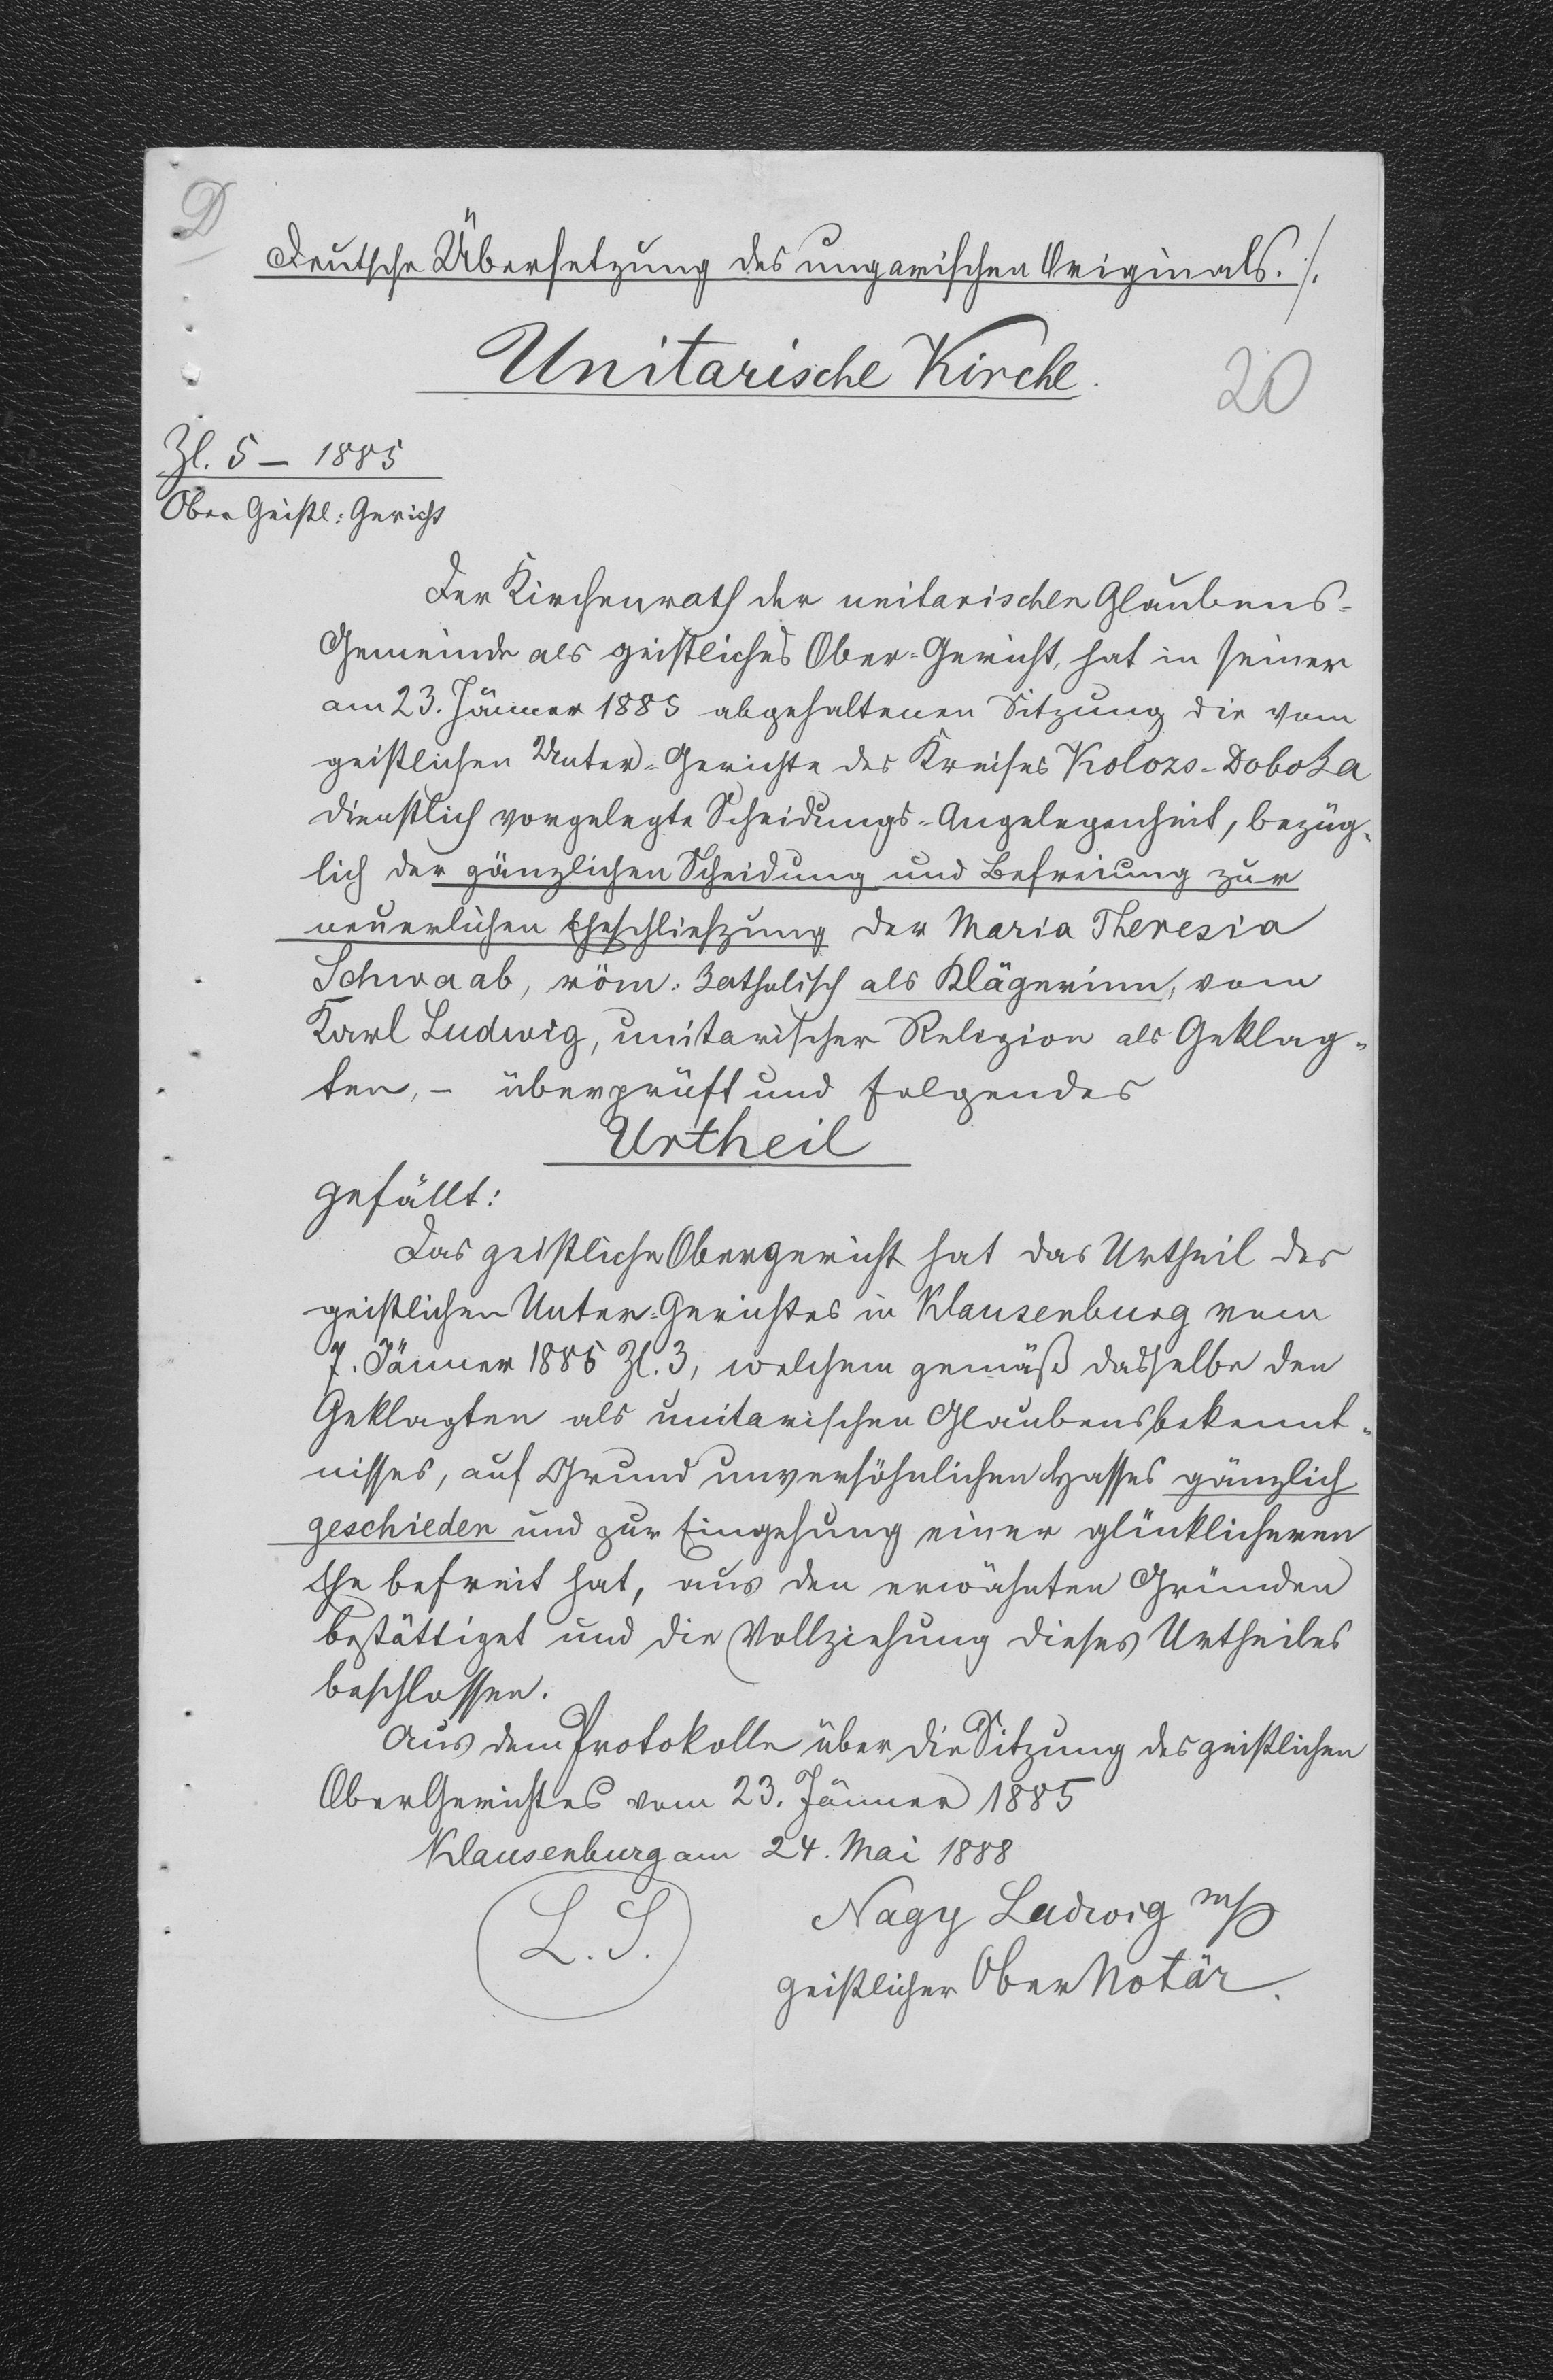 D
Deutsche Übersetzung des ungarischen Originals. ./.
Unitarische Kirche.
20
Zl. 5 – 1885
Ober Geistl: Gericht
Der Kirchenrath der unitarischen Glaubens-
Gemeinde als geistliches Ober-Gericht, hat in seiner
am 23. Jänner 1885 abgehaltenen Sitzung die vom
geistlichen Unter-Gerichte des Kreises Kolozs-Doboka
dienstlich vorgelegte Scheidungs-Angelegenheit, bezüg-
lich der gänzlichen Scheidung und Befreiung zur
neuerlichen Eheschließung der Maria Theresia
Schwaab, röm: katholisch als Klägerinn, vom
Karl Ludwig, unitarischer Religion als Geklag-
ten, – überprüft und folgendes
Urtheil
gefällt:
Das geistliche Obergericht hat das Urtheil des
geistlichen Unter-Gerichtes in Klausenburg vom
7. Jänner 1885 Zl. 3, welchem gemäß dasselbe den
Geklagten als unitarischen Glaubensbekennt-
nisses, auf Grund unversöhnlichen Hasses gänzlich
geschieden und zur Eingehung einer glücklicheren
Ehe befreit hat, aus den erwähnten Gründen
bestättiget und die Vollziehung dieses Urtheiles
beschlossen.
Aus dem Protokolle über die Sitzung des geistlichen
Ober Gerichtes vom 23. Jänner 1885
Klausenburg am 24. Mai 1888
L. S.
Nagy Ludwig m/p
geistlicher Ober Notär.